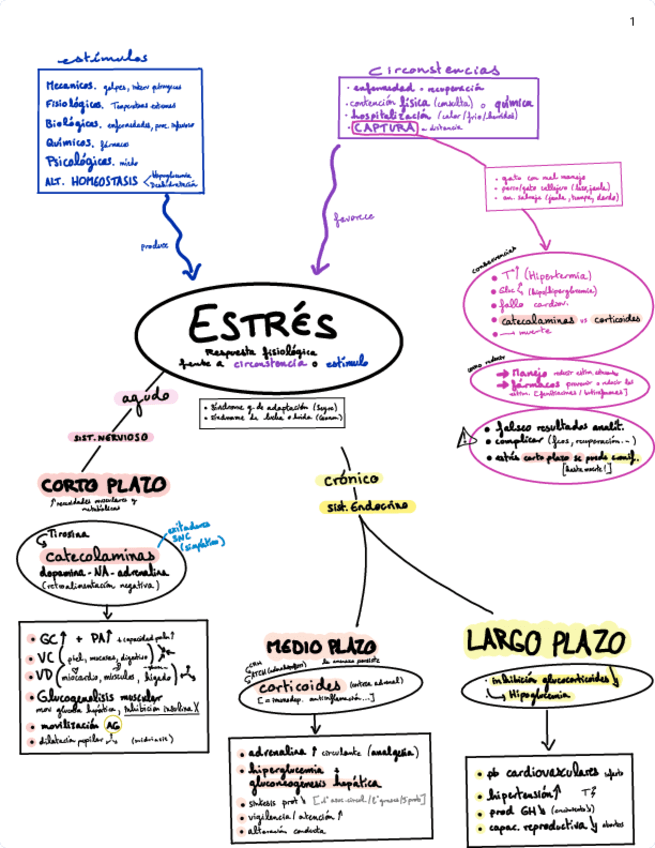 1
estímulos
Mecánicos. golpes, interv quirúrgicas
Fisiológicos. Temperaturas extremas
Biológicos. enfermedades, proc. infeccioso
Químicos. fármaco
Psicológicos. miedo
ALT. HOMEOSTASIS < Hipoglucemia
Deshidratación
circunstancias
• enfermedad - recuperación
• contención física (consulta) o química
• hospitalización (calor/frío/heridas)
• CAPTURA - distancia
• gato con mal manejo
• perro/gato callejero (lazo, jaula)
• an. salvaje (jaula, trampa, dardo)
produce
favorece
consecuencias
• Tª↑ (Hipertermia)
• Glc (hipo/hiperglucemia)
• fallo cardiov.
• catecolaminas vs corticoides
• → muerte
ESTRÉS
Respuesta fisiológica
frente a circunstancia o estímulo
• Síndrome g. de adaptación (Seyre)
• Síndrome de lucha o huida (Canon)
como reducir
→ Manejo reducir estim.
→ fármacos prevenir o reducir los
estim. [ / butirofenonas]
• falseo resultados analít.
• complicar (fcos, recuperación...)
• estrés corto plazo se puede
[hasta muerte!]
agudo
SIST. NERVIOSO
CORTO PLAZO
↑ necesidades musculares y
metabólicas
Tirosina
catecolaminas
dopamina - NA - adrenalina
(retroalimentación negativa)
exitadores
SNC
(simpático)
• GC↑ + PA↑ + capacidad pulm↑
• VC (piel, mucosas, digestivo)
• VD (miocardio, músculos, hígado)
• Glucogenolisis muscular
glucosa hepática, inhibición insulina
• movilización AG
• dilatación pupilar (midriasis)
crónico
sist. Endocrino
MEDIO PLAZO
CRH
la amenaza persiste
corticoides (corteza adrenal)
[= inmunodep. antiinflamación...]
• adrenalina ↑ circulante (analgesia)
• hiperglucemia +
gluconeogénesis hepática
• síntesis prot↓
• vigilancia / atención ↑
• alteración conducta
LARGO PLAZO
• inhibición glucocorticoides ↓
↳ Hipoglucemia
• pb cardiovasculares infarto
• hipertensión↑ Tª
• prod GH↓ (crecimiento↓)
• capac. reproductiva ↓ abortos